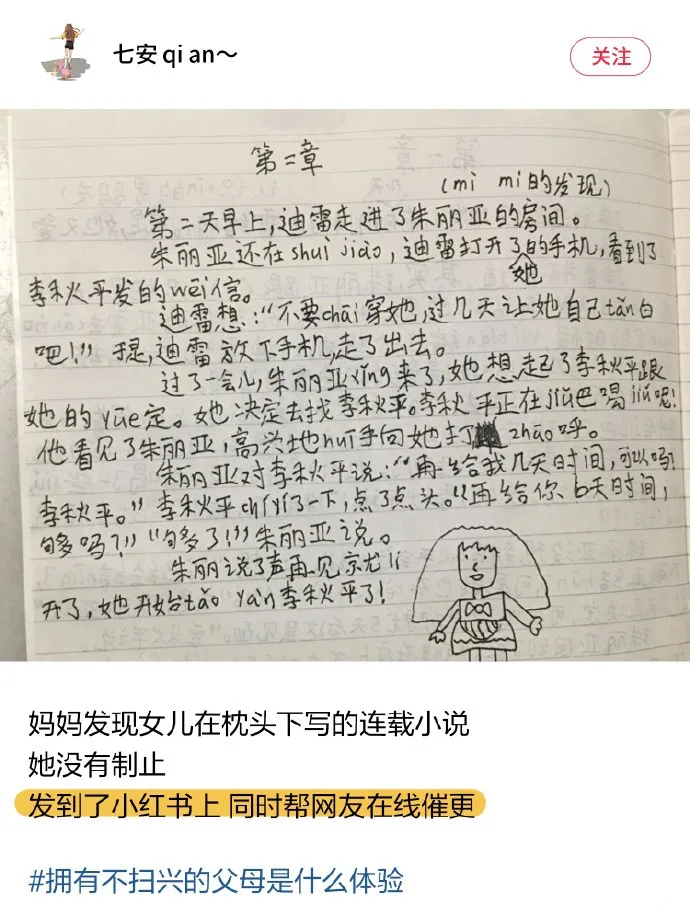 七安 qi an～
关注
第二章
(mì mì的发现)
第二天早上，迪雷走进了朱丽亚的房间。
朱丽亚还在shuì jiào，迪雷打开了她的手机，看到了
李秋平发的wēi信。
迪雷想：“不要chāi穿她，过几天让她自己tǎn白
吧！”于是，迪雷放下手机，走了出去。
过了一会儿，朱丽亚xǐng来了，她想起了李秋平跟
她的yuē定。她决定去找李秋平。李秋平正在jiǔ巴喝jiǔ呢！
他看见了朱丽亚，高兴地huī手向她打zhāo呼。
朱丽亚对李秋平说：“再给我几天时间，可以吗？
李秋平。”李秋平chí yí了一下，点了点头。“再给你6天时间，
够吗？！”“够了！”朱丽亚说。
朱丽说了声再见，就lí
开了，她开始tǎo yàn李秋平了！
妈妈发现女儿在枕头下写的连载小说
她没有制止
发到了小红书上 同时帮网友在线催更
#拥有不扫兴的父母是什么体验